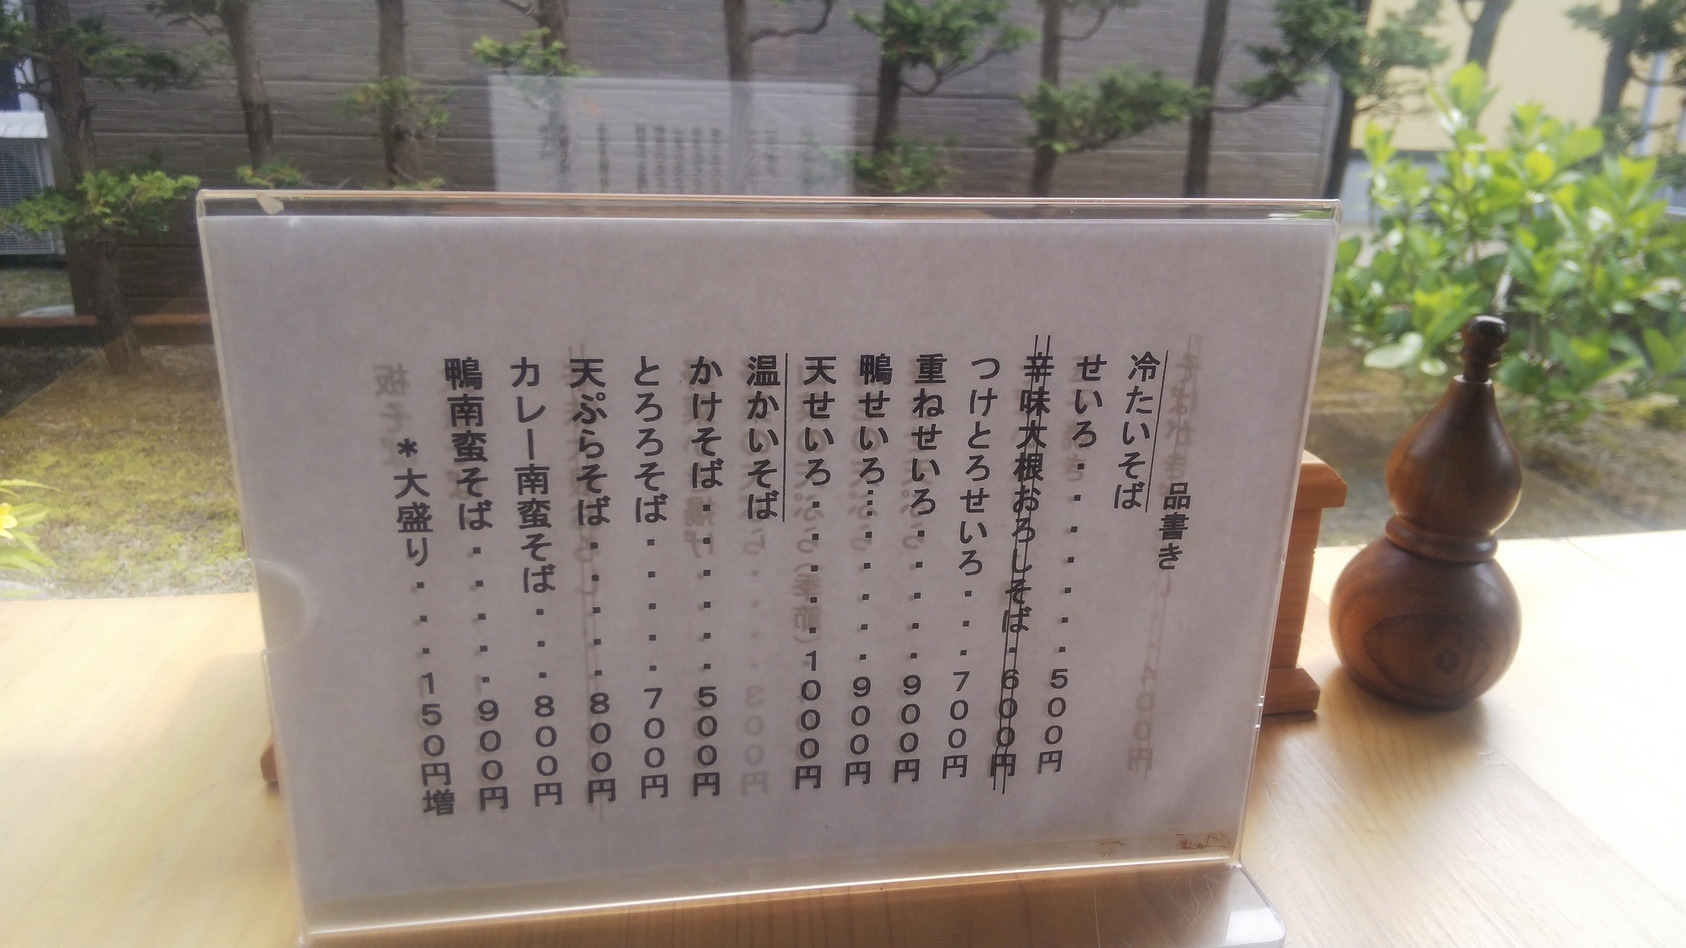 品書き
冷たいそば
せいろ・・・・・・・500円
辛味大根おろしそば・600円
つけとろせいろ・・・700円
重ねせいろ・・・・・900円
鴨せいろ・・・・・・・900円
天せいろ・・・・・・1000円
温かいそば
かけそば・・・・・・500円
とろろそば・・・・・700円
天ぷらそば・・・・・800円
カレー南蛮そば・・・800円
鴨南蛮そば・・・・・900円
*大盛り・・・・150円増